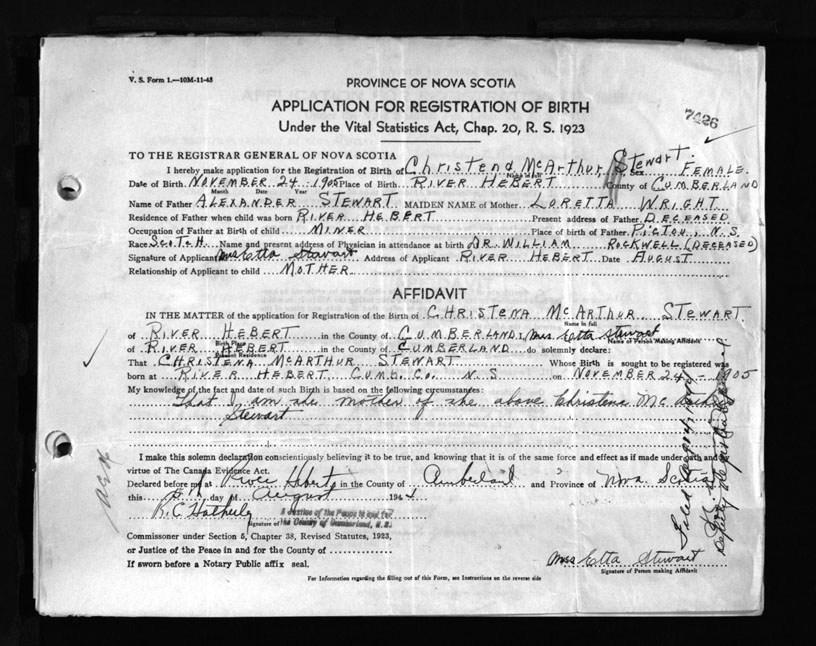 V. S. Form 1.—10M-11-43
PROVINCE OF NOVA SCOTIA
APPLICATION FOR REGISTRATION OF BIRTH
7426
Under the Vital Statistics Act, Chap. 20, R. S. 1923
TO THE REGISTRAR GENERAL OF NOVA SCOTIA
I hereby make application for the Registration of Birth of CHRISTENA McARTHUR STEWART. Sex FEMALE.
Name in full
Date of Birth NOVEMBER 24 - 1905 Place of Birth RIVER HEBERT County of CUMBERLAND
Month Date Year
Name of Father ALEXANDER STEWART MAIDEN NAME of Mother LORETTA WRIGHT
Residence of Father when child was born RIVER HEBERT Present address of Father DECEASED
Occupation of Father at Birth of child MINER Place of birth of Father PICTOU, N.S.
Race SCOTCH Name and present address of Physician in attendance at birth DR. WILLIAM ROCKWELL (DECEASED)
Signature of Applicant Mrs Etta Stewart Address of Applicant RIVER HEBERT Date AUGUST
Relationship of Applicant to child MOTHER
AFFIDAVIT
IN THE MATTER of the application for Registration of the Birth of CHRISTENA McARTHUR STEWART
Name in full
of RIVER HEBERT in the County of CUMBERLAND I, Mrs Etta Stewart
Birth Place Name of Person Making Affidavit
of RIVER HEBERT in the County of CUMBERLAND do solemnly declare:
Present Residence
That CHRISTENA McARTHUR STEWART Whose Birth is sought to be registered was
born at RIVER HEBERT CUMB. CO. N S on NOVEMBER 24 - 1905
My knowledge of the fact and date of such Birth is based on the following circumstances:
That I am the mother of the above Christena Mc
Stewart
I make this solemn declaration conscientiously believing it to be true, and knowing that it is of the same force and effect as if made under oath and by
virtue of The Canada Evidence Act.
Declared before me at River Hebert in the County of Cumberland and Province of Nova Scotia
this day of August 1944
R. C.
A Justice of the Peace in and for
Signature of the County of Cumberland, N.S.
Commissioner under Section 5, Chapter 38, Revised Statutes, 1923,
or Justice of the Peace in and for the County of
If sworn before a Notary Public affix seal.
Mrs Etta Stewart
Signature of Person making Affidavit
For Information regarding the filling out of this Form, see Instructions on the reverse side